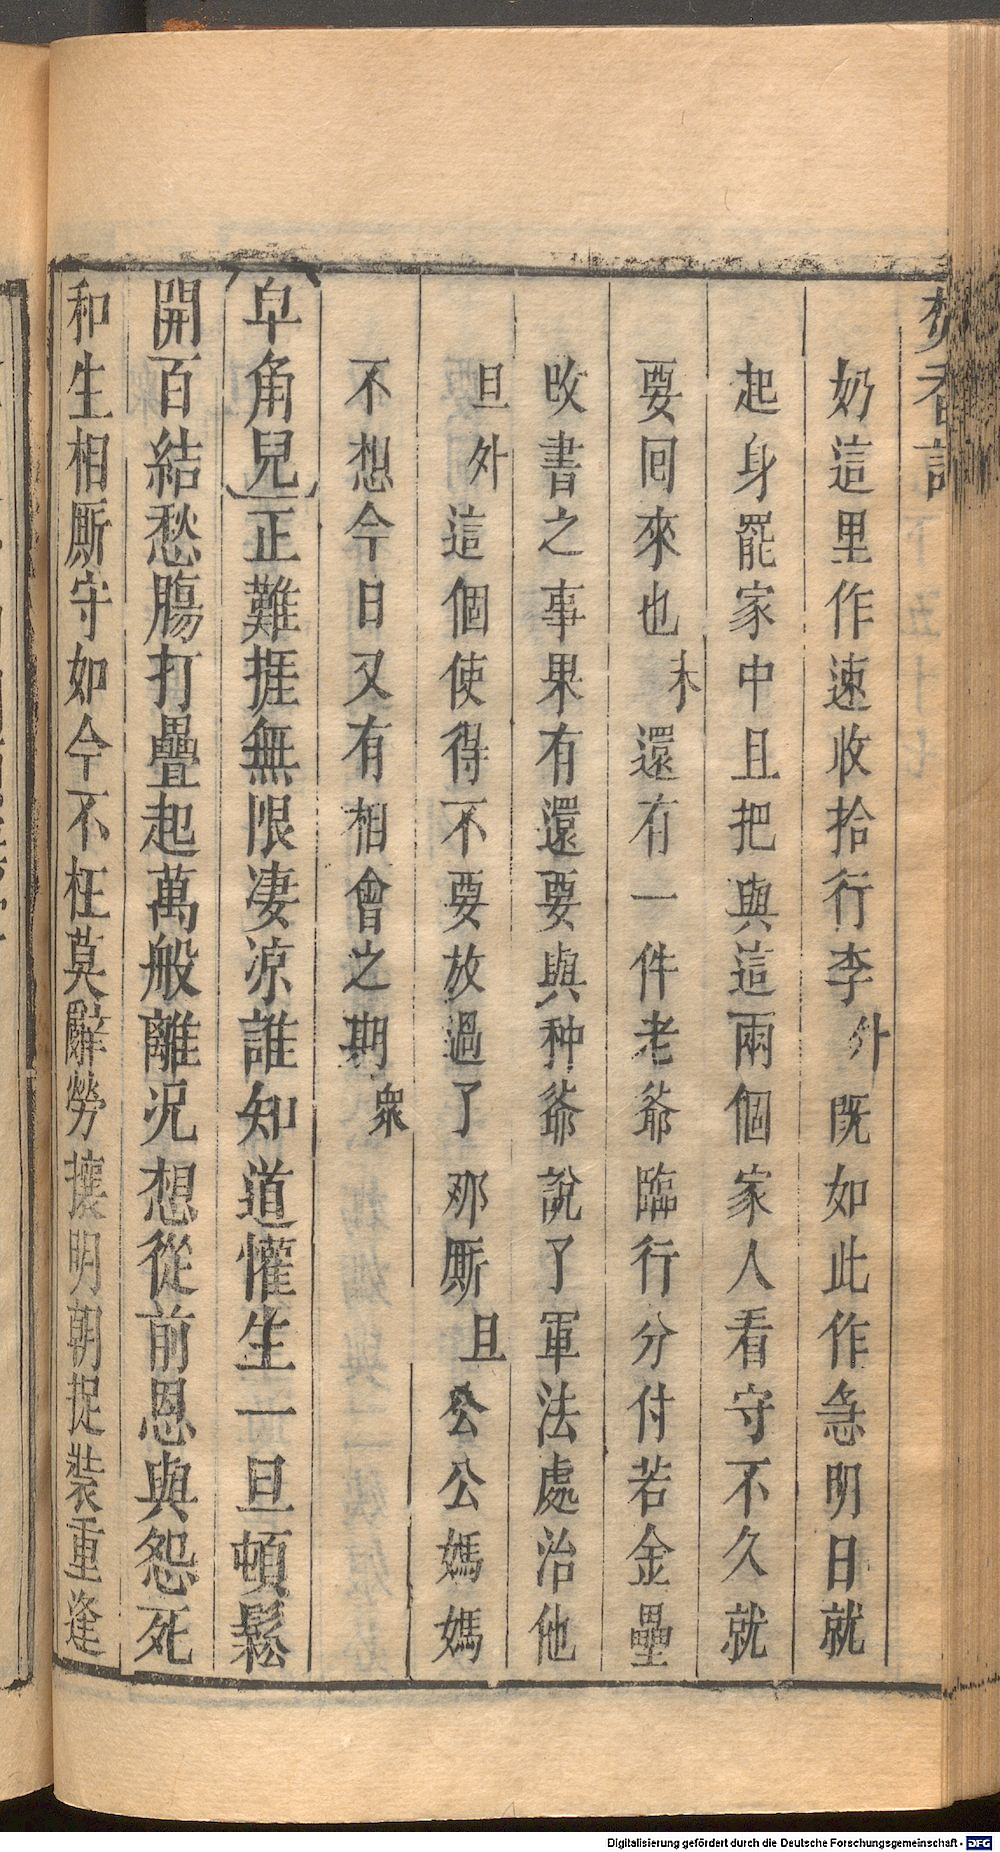 焚香記
奶這里作速收拾行李外既如此作急明日就
起身罷家中且把與這兩個家人看守不久就
要囘來也末還有一件老爺臨行分付若金壘
改書之事果有還要與种爺說了軍法處治他
旦外這個使得不要放過了那厮旦公公媽媽
不想今日又有相會之期衆
皁角兒正難捱無限凄凉誰知道懽生一旦頓鬆
開百結愁腸打疊起萬般離況想從前恩與怨死
和生相厮守如今不枉莫辭勞攘明朝捉裝重逢
Digitalisierung gefördert durch die Deutsche Forschungsgemeinschaft - DFG